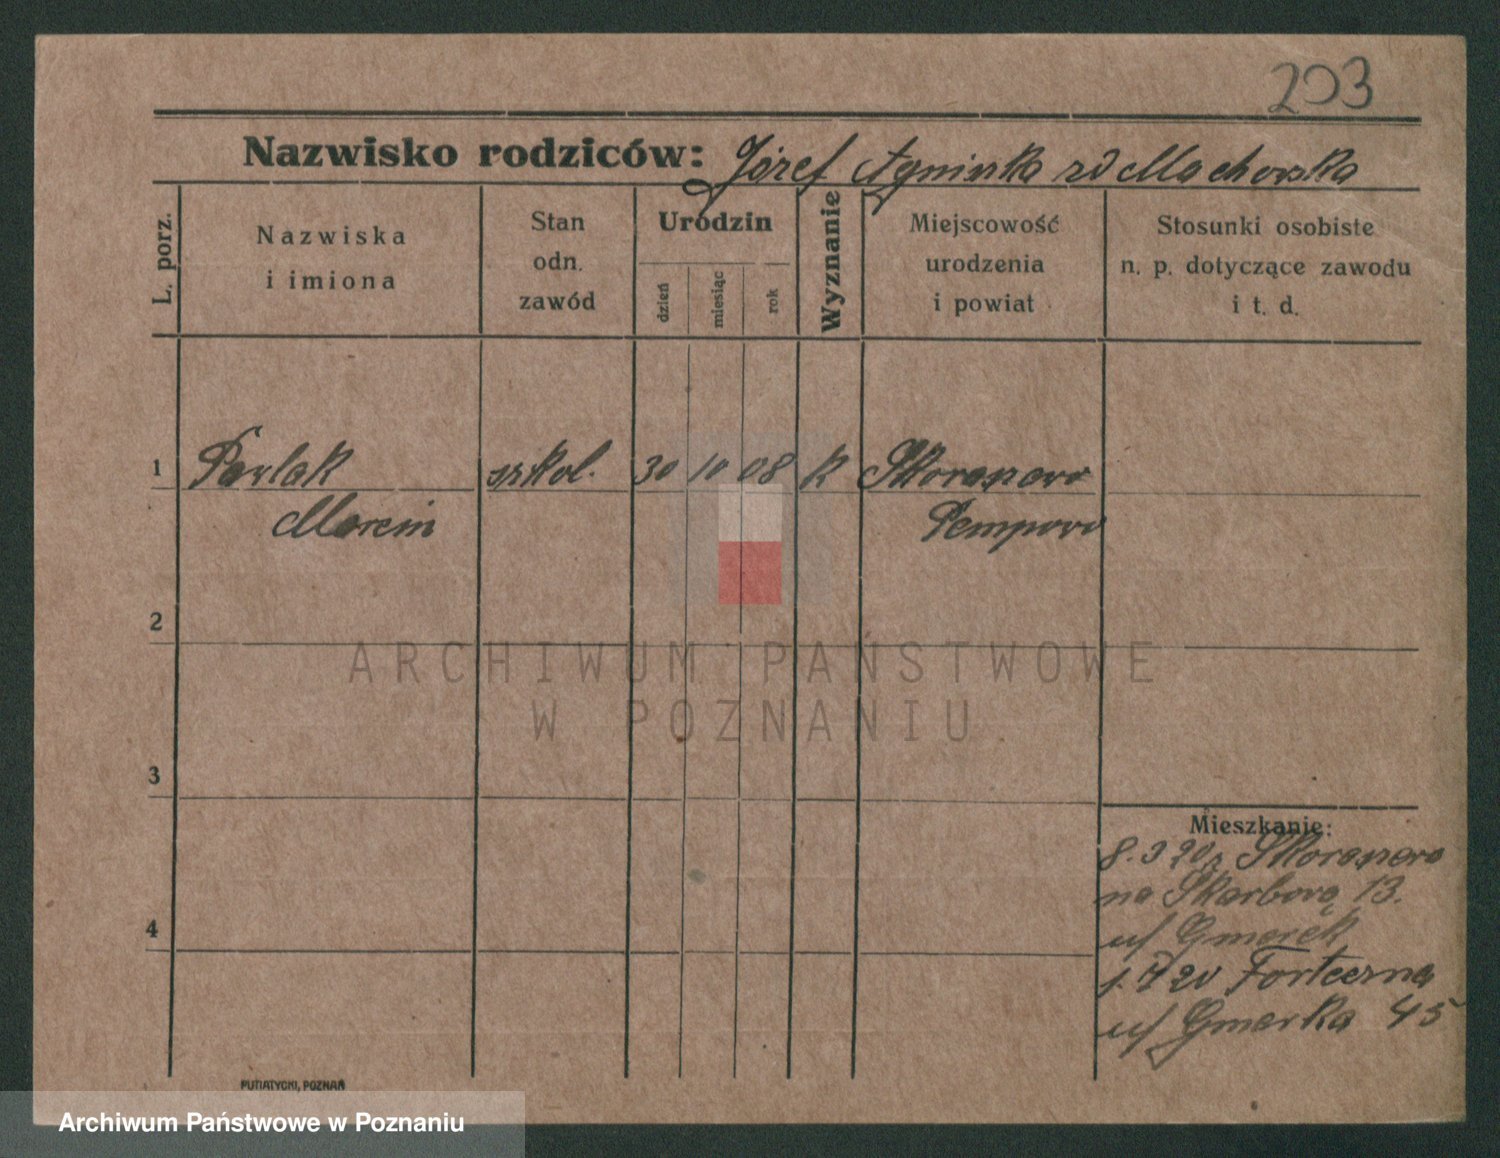 203
Nazwisko rodziców: Józef Agniszka zd Machowska
L. porz.
Nazwiska
i imiona
Stan
odn.
zawód
Urodzin
dzień
miesiąc
rok
Wyznanie
Miejscowość
urodzenia
i powiat
Stosunki osobiste
n. p. dotyczące zawodu
i t. d.
1 Pawlak szkol. 30 10 08 k Skoraszewo
Marcin Pempowo
2
3
4
Mieszkanie:
8. 3 20 z Skoraszewo
na Skarbową 13.
u/ Gmerek
1. 7 20 Forteczna
u/ Gmerka 45
PUTIATYCKI, POZNAŃ
ARCHIWUM PAŃSTWOWE
W POZNANIU
Archiwum Państwowe w Poznaniu